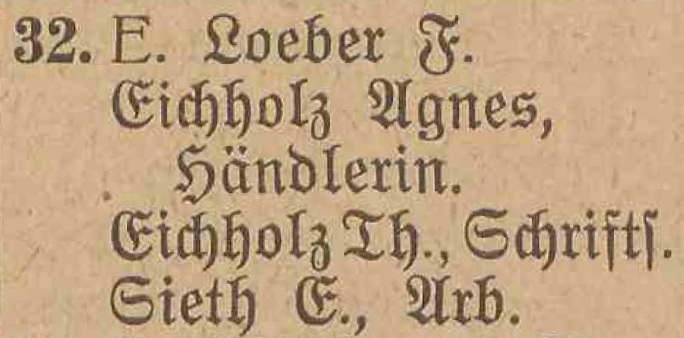 32. E. Loeber F.
Eichholz Agnes,
Händlerin.
Eichholz Th., Schrifts.
Sieth E., Arb.